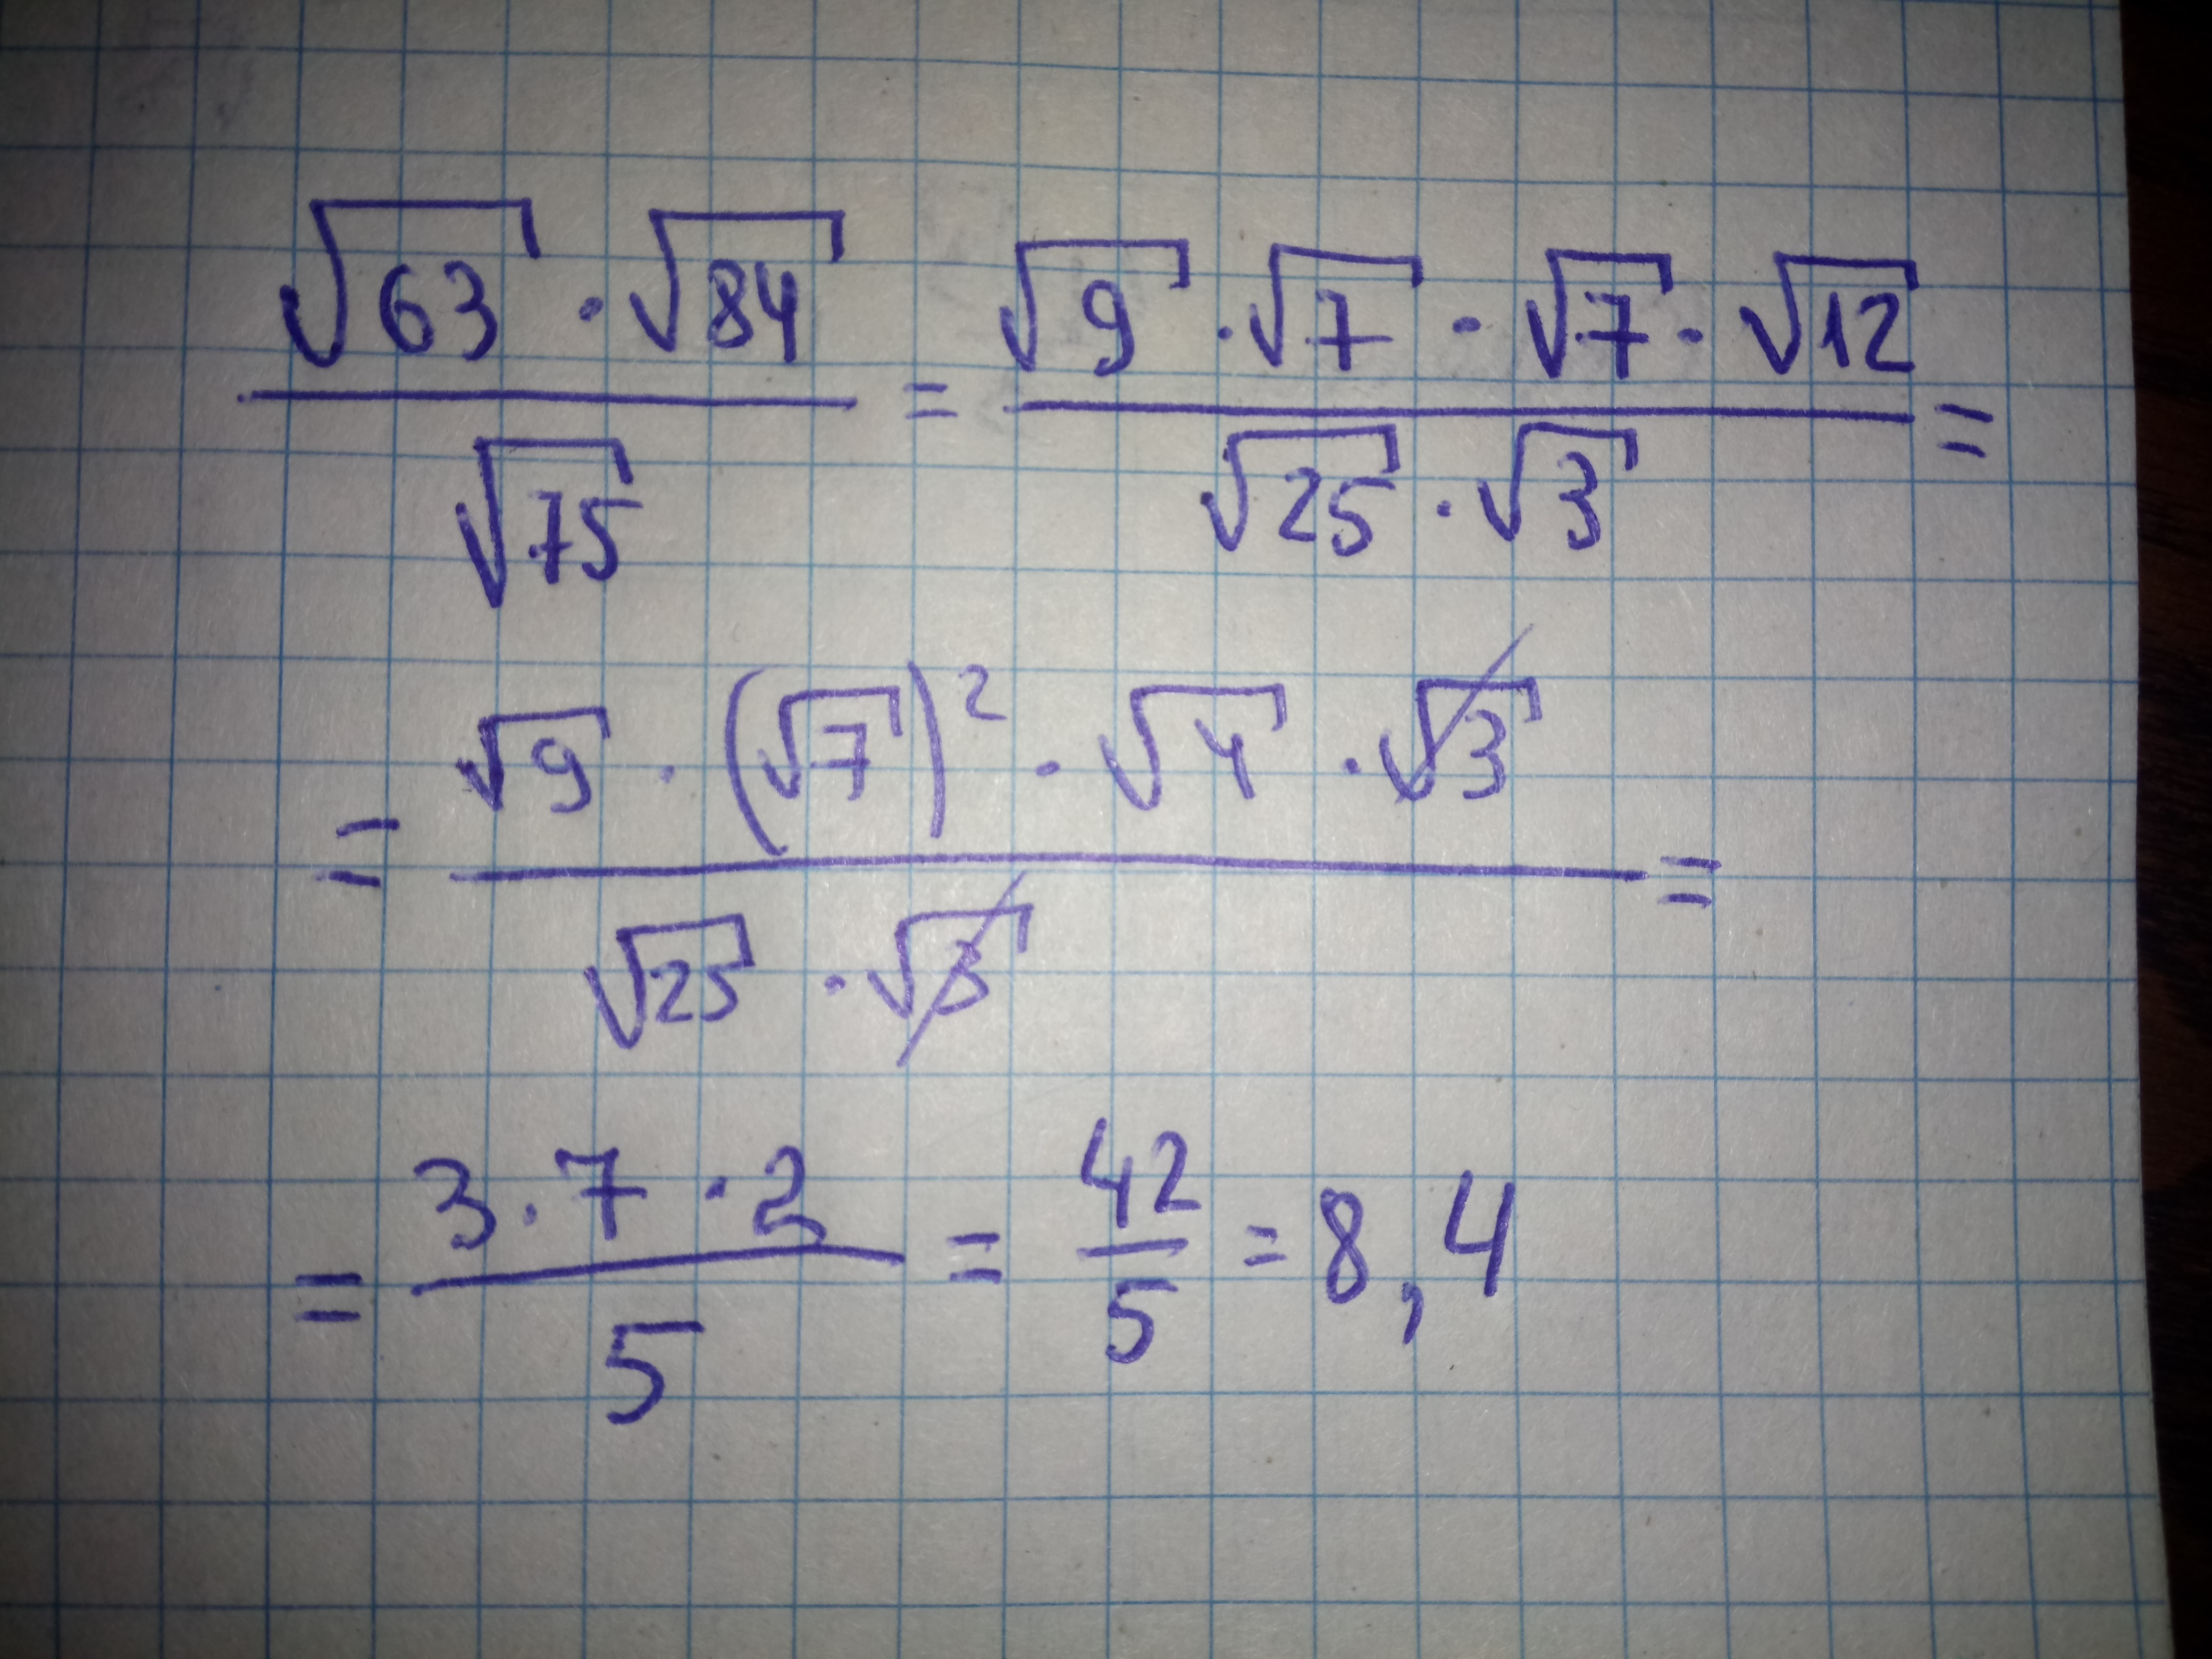 (√63 · √84) / √75 = (√9 · √7 · √7 · √12) / (√25 · √3) =
= (√9 · (√7)² · √4 · √3) / (√25 · √3) =
= (3 · 7 · 2) / 5 = 42/5 = 8,4